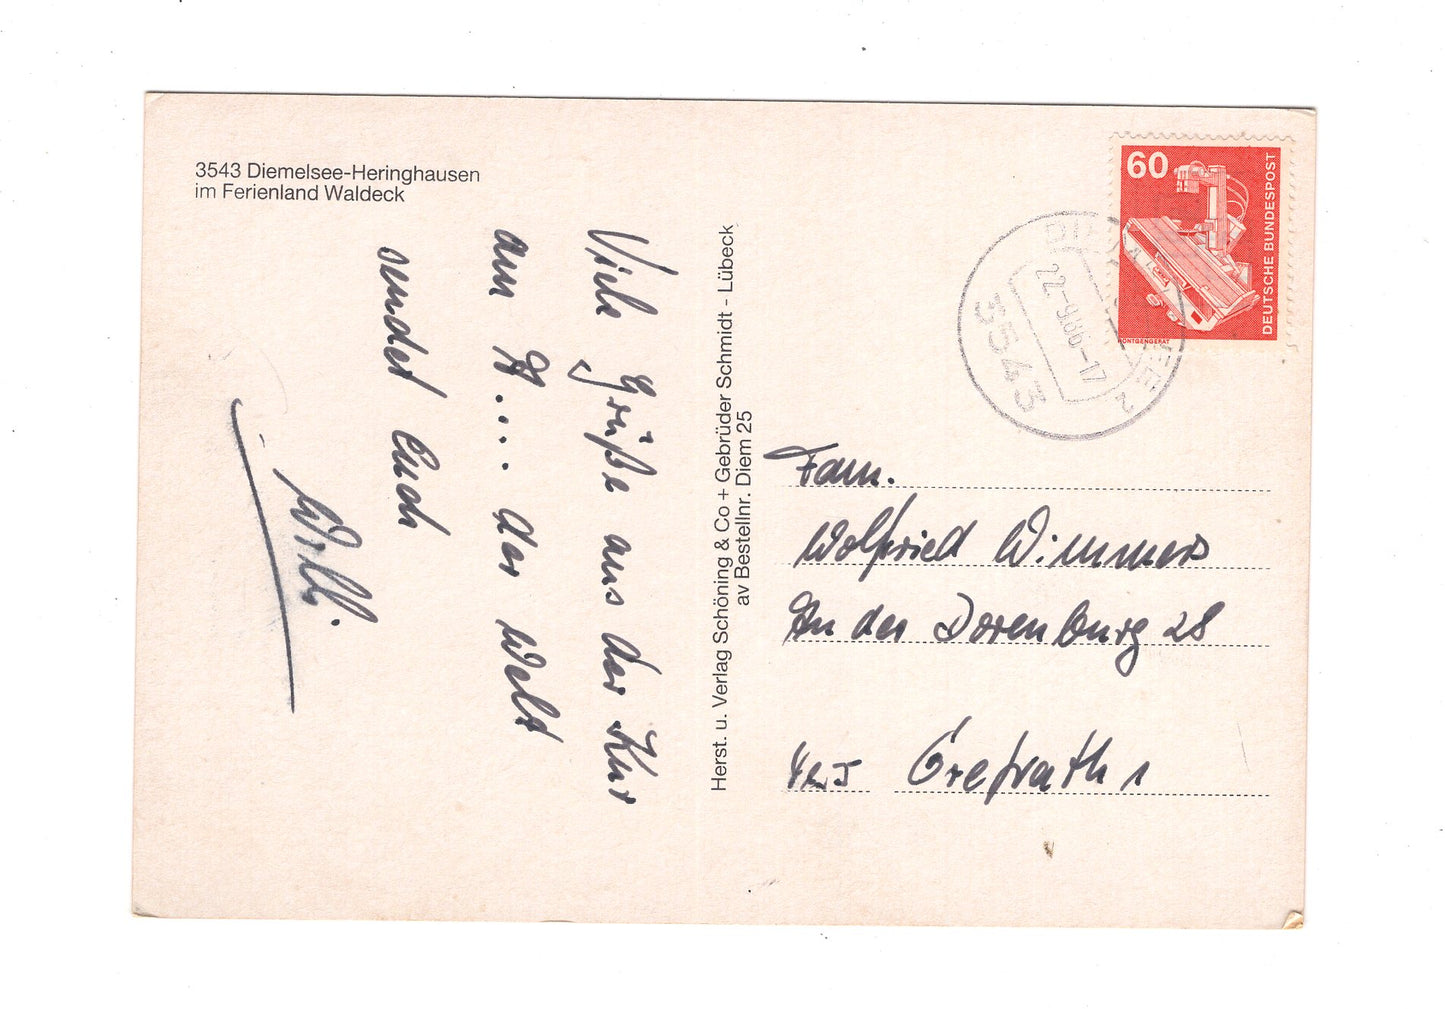 3543 Diemelsee-Heringhausen
im Ferienland Waldeck
Viele Grüße aus der Kur
am A.... der Welt
sendet Euch
Willi.
Herst. u. Verlag Schöning & Co + Gebrüder Schmidt - Lübeck
av Bestellnr. Diem 25
60
DEUTSCHE BUNDESPOST
RÖNTGENGERÄT
3543
2
Fam.
Wolfried Wimmers
An der Dorenburg 28
Grefrath 1